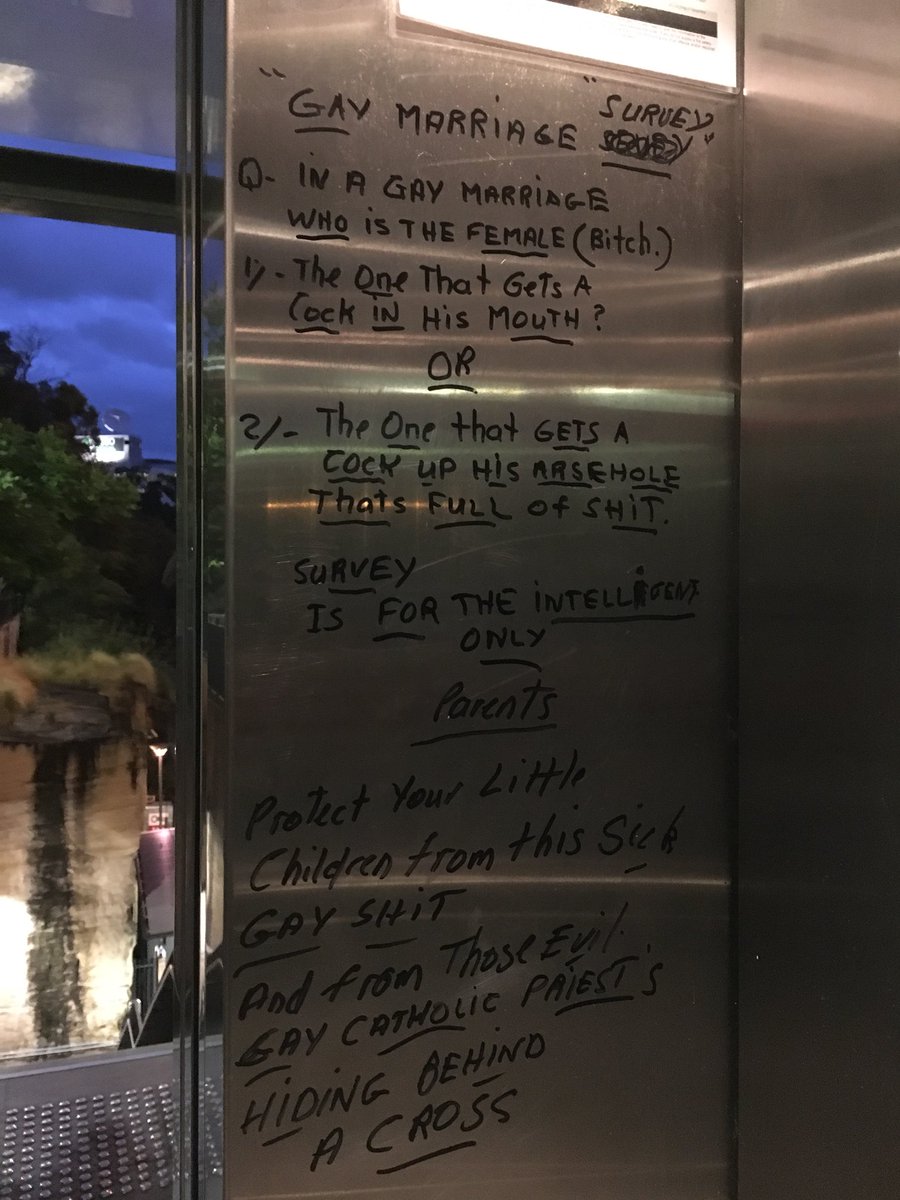 "GAY MARRIAGE "SURVEY"
Q- IN A GAY MARRIAGE
WHO IS THE FEMALE (Bitch.)
1)- The One That Gets A
Cock IN His MOUTH?
OR
2/- The One that GETS A
COCK UP HIS ARSEHOLE
Thats FULL OF SHIT.
SURVEY
IS FOR THE INTELLIGENT
ONLY
Parents
Protect Your Little
Children from this Sick
GAY SHIT
And from Those Evil
GAY CATHOLIC PRIEST's
HIDING BEHIND
A CROSS